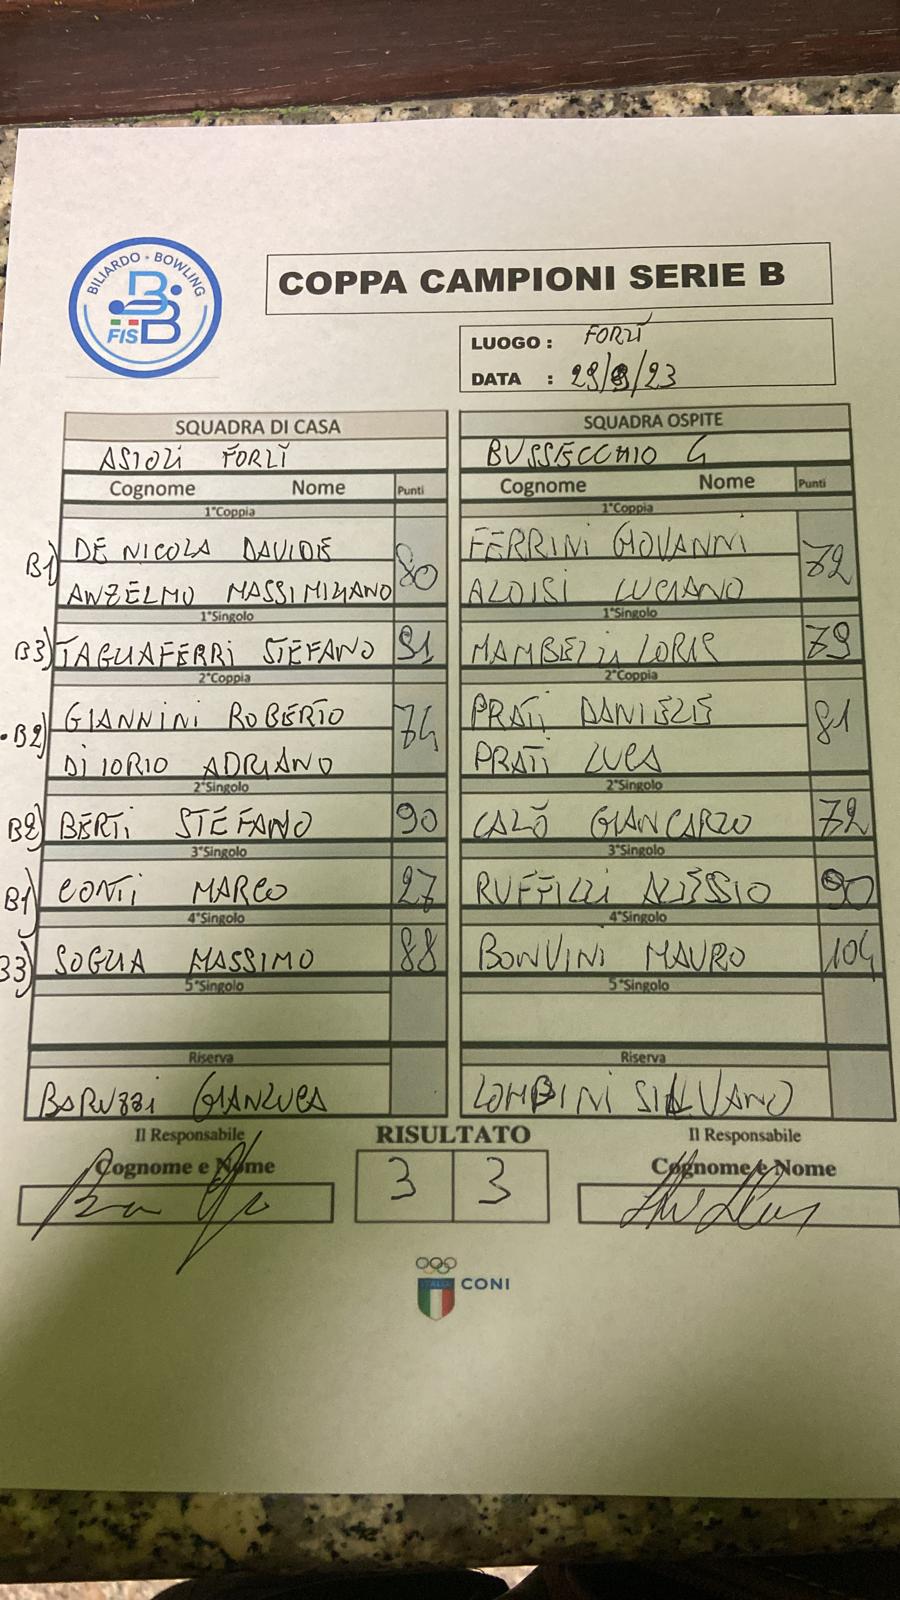 BILIARDO - BOWLING
FISBB
COPPA CAMPIONI SERIE B
LUOGO : FORLÌ
DATA : 29/9/23
SQUADRA DI CASA SQUADRA OSPITE
ASIOLI FORLÌ BUSSECCHIO G
Cognome Nome Punti Cognome Nome Punti
1°Coppia 1°Coppia
B1) DE NICOLA DAVIDE 80 FERRINI GIOVANNI 72
ANZELMO MASSIMILIANO ALOISI LUCIANO
1°Singolo 1°Singolo
B3) TAGLIAFERRI STEFANO 91 MAMBELLI LORIS 79
2°Coppia 2°Coppia
B2) GIANNINI ROBERTO 74 PRATI DANIELE 81
DI IORIO ADRIANO PRATI LUCA
2°Singolo 2°Singolo
B2) BERTI STEFANO 90 CALÒ GIANCARLO 72
3°Singolo 3°Singolo
B1) CONTI MARCO 27 RUFFILLI ALESSIO 90
4°Singolo 4°Singolo
B3) SOGLIA MASSIMO 88 BONVINI MAURO 104
5°Singolo 5°Singolo
Riserva Riserva
BARUZZI GIANLUCA LOMBINI SILVANO
Il Responsabile RISULTATO Il Responsabile
Cognome e Nome 3 3 Cognome e Nome
ITALIA CONI